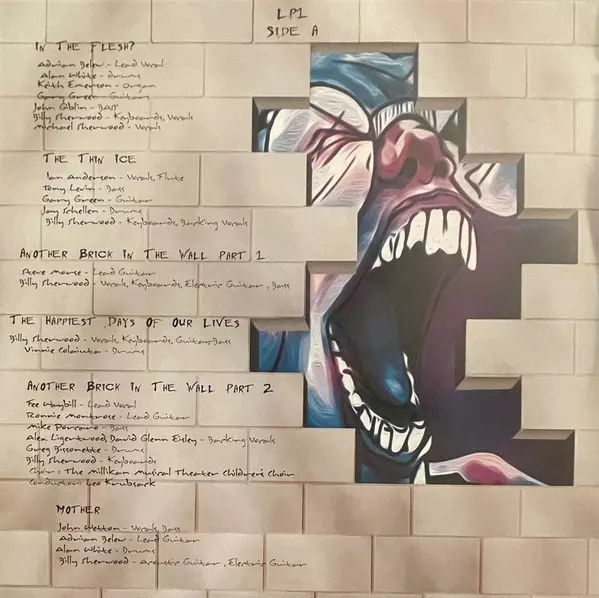 LP1
SIDE A
IN THE FLESH?
Adrian Belew - Lead Vocal
Alan White - Drums
Keith Emerson - Organ
Gary Green - Guitars
John Giblin - Bass
Billy Sherwood - Keyboards, Vocals
Michael Sherwood - Vocals
THE THIN ICE
Ian Anderson - Vocals, Flute
Tony Levin - Bass
Gary Green - Guitar
Jay Schellen - Drums
Billy Sherwood - Keyboards, Barking Vocals
ANOTHER BRICK IN THE WALL PART 1
Steve Morse - Lead Guitar
Billy Sherwood - Vocals, Keyboards, Electric Guitar, Bass
THE HAPPIEST DAYS OF OUR LIVES
Billy Sherwood - Vocals, Keyboards, Guitar, Bass
Vinnie Colaiuta - Drums
ANOTHER BRICK IN THE WALL PART 2
Fee Waybill - Lead Vocal
Ronnie Montrose - Lead Guitar
Mike Porcaro - Bass
Alex Ligertwood, David Glenn Eisley - Barking Vocals
Greg Bissonette - Drums
Billy Sherwood - Keyboards
Choir: The Millikan Musical Theater Children's Choir
Conductor: Leo Krubsack
MOTHER
John Wetton - Vocals, Bass
Adrian Belew - Lead Guitar
Alan White - Drums
Billy Sherwood - Acoustic Guitar, Electric Guitar